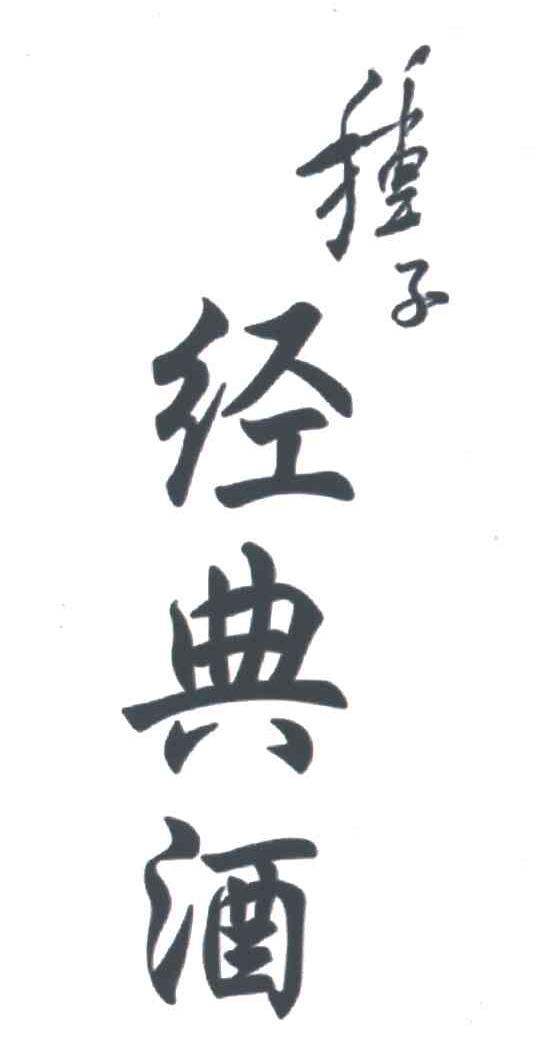 種子
经典酒